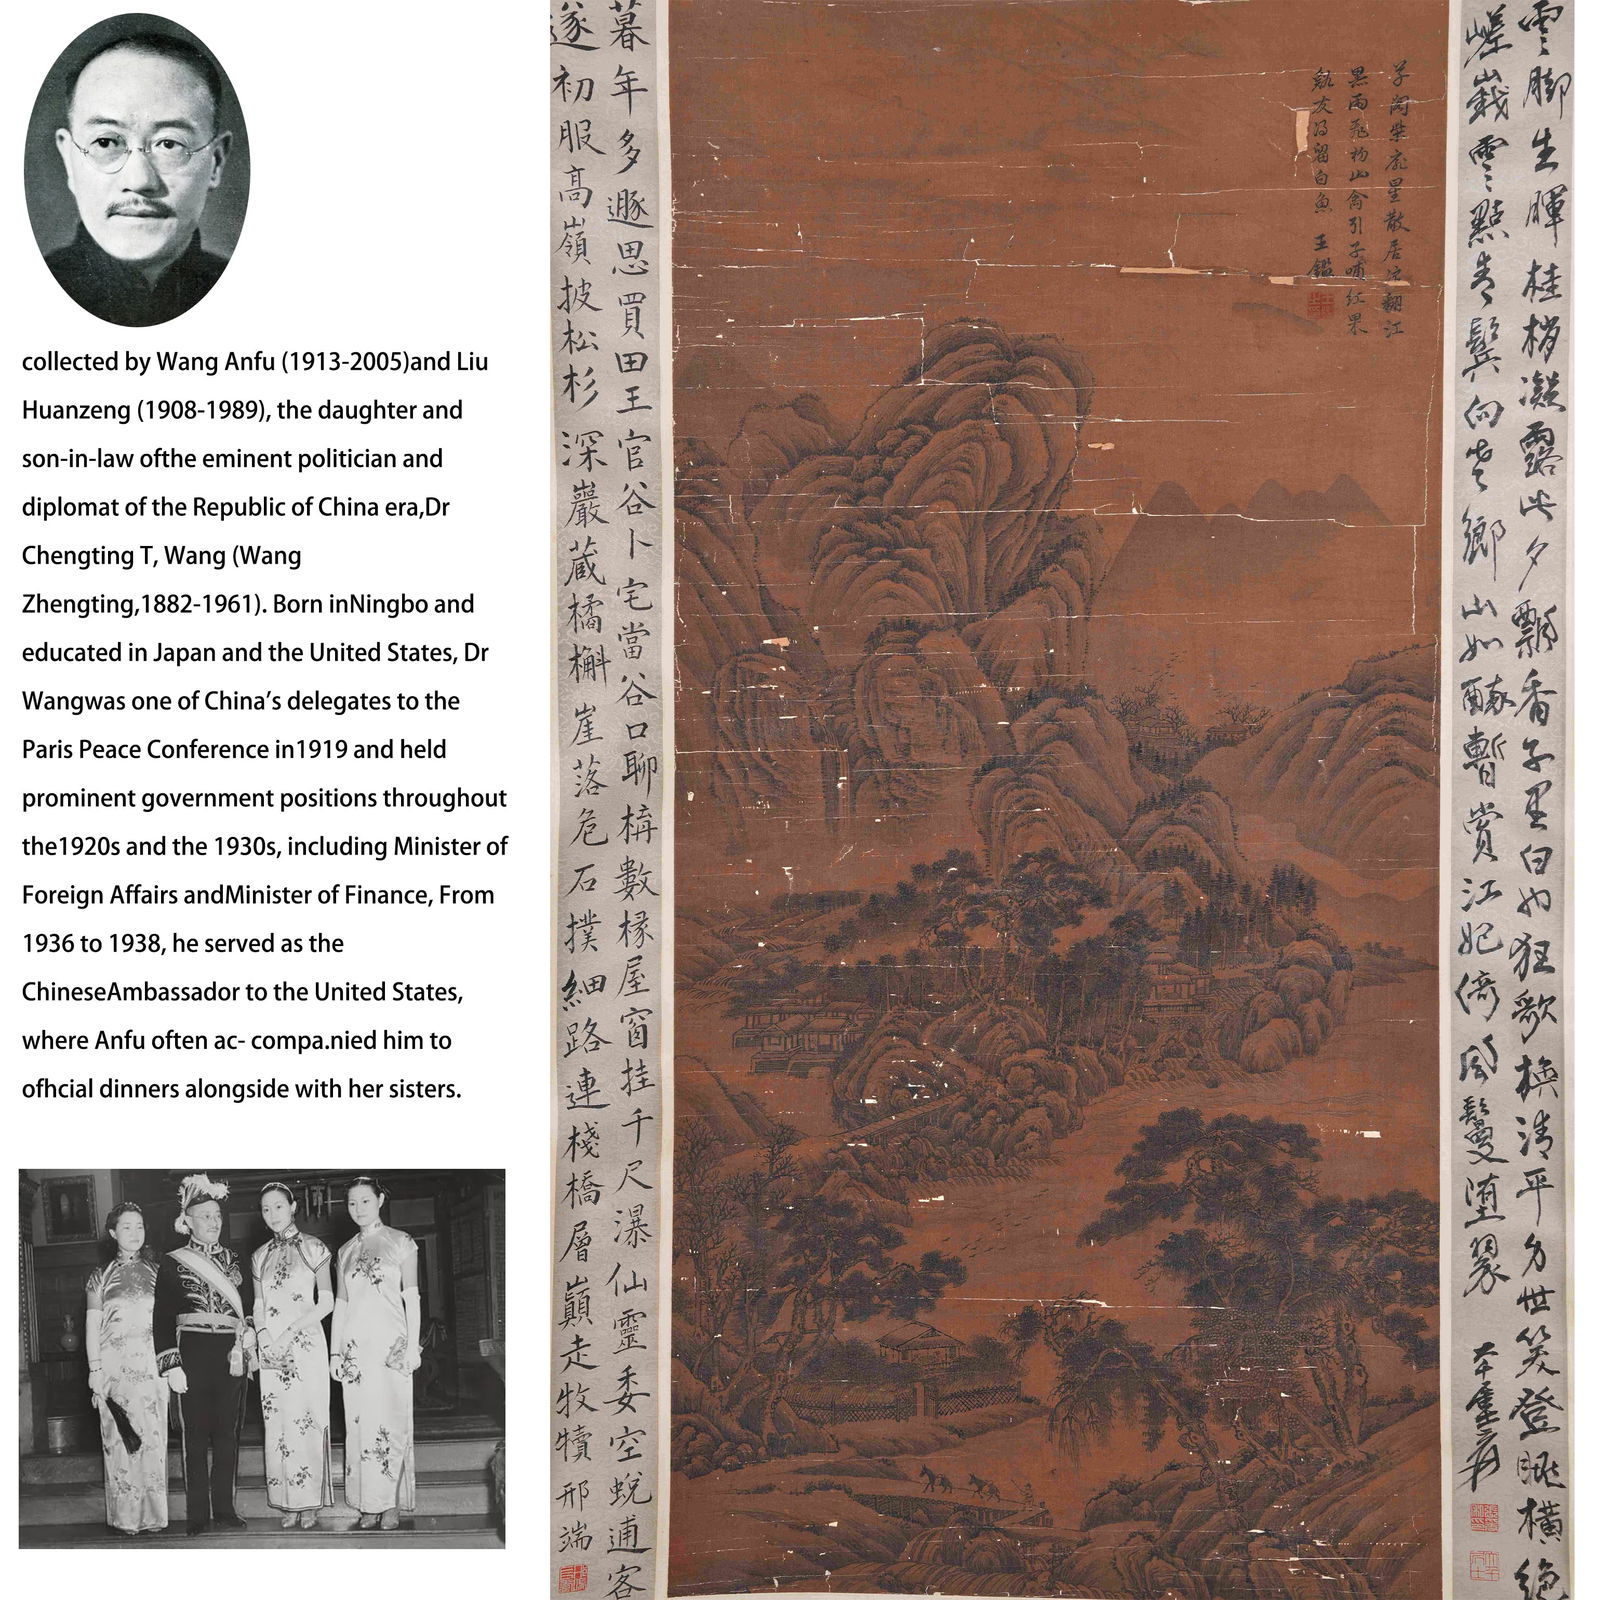 collected by Wang Anfu (1913-2005)and Liu
Huanzeng (1908-1989), the daughter and
son-in-law ofthe eminent politician and
diplomat of the Republic of China era,Dr
Chengting T, Wang (Wang
Zhengting,1882-1961). Born inNingbo and
educated in Japan and the United States, Dr
Wangwas one of China’s delegates to the
Paris Peace Conference in1919 and held
prominent government positions throughout
the1920s and the 1930s, including Minister of
Foreign Affairs andMinister of Finance, From
1936 to 1938, he served as the
ChineseAmbassador to the United States,
where Anfu often ac- compa.nied him to
ofhcial dinners alongside with her sisters.
雲腳生暉桂梢凝露此夕飄香子里白也狂歌換清平 世笑登眺橫絕
嵯峨雲點青鬢向 鄉山如 暫賞江妃倚風鬟墮翠
草閣柴扉星散居浪翻江
黑雨飛初山禽引子哺紅果
谿友得留白魚 王鑑
暮年多遯思買田王官谷卜宅當谷口聊構數椽屋窗挂千尺瀑仙靈委空蛻逋客
遂初服高嶺披松杉深巖蔵橘槲崖落危石撲細路連棧橋層巔走牧犢 邢端